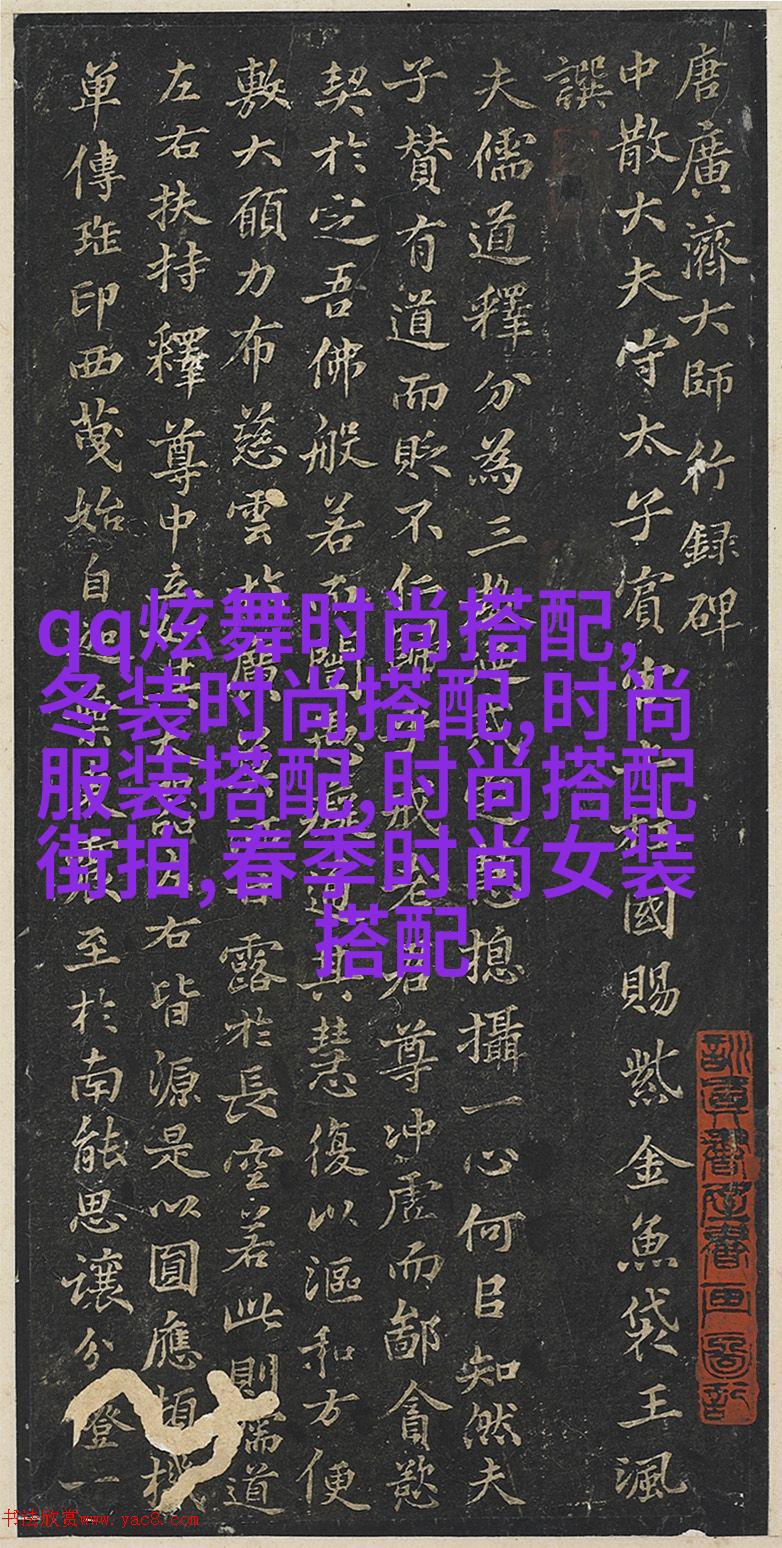 唐廣濟大師行錄碑
中散大夫守太子賓國賜紫金魚袋王渢
譔
夫儒道釋分為三揔攝一心何以知然夫
子賛有道而貶不仁歸戒老君尊冲虛而鄙貪慾
契於定吾佛般若其慧復以漚和方便
敷大願力布慈雲露於長空若此則儒道
左右扶持釋尊中右皆源是以圓應頓機
單傳印西始自迦葉至於南能思讓分燈一
qq炫舞时尚搭配,
冬装时尚搭配,时尚
服装搭配,时尚搭配
街拍,春季时尚女装
搭配
书法欣赏www.yac8.com